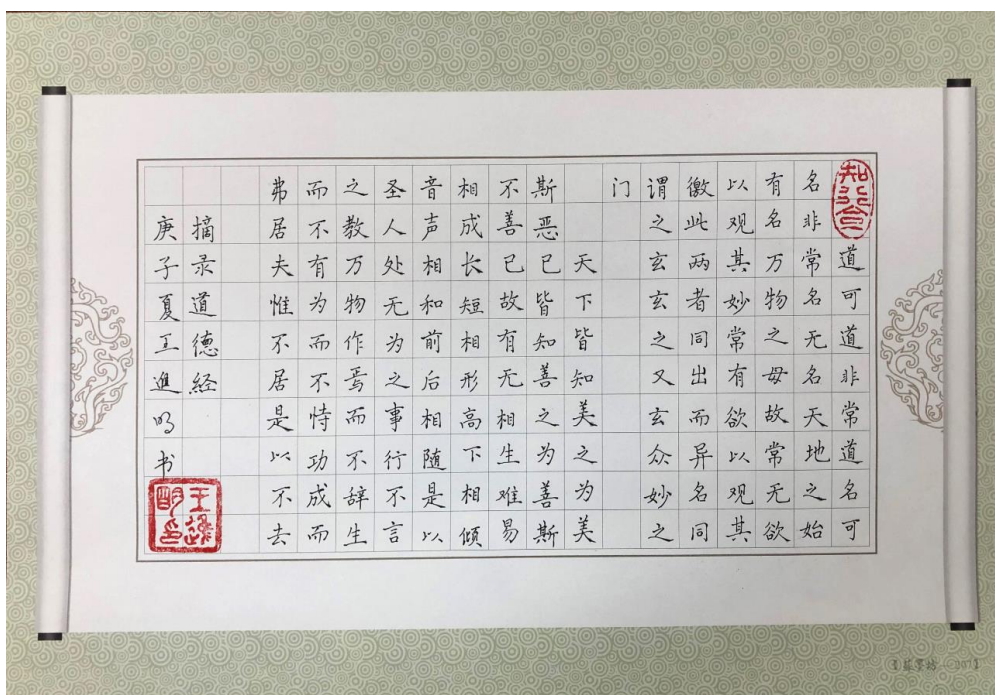 知行合一
道可道非常道名可
名非常名无名天地之始
有名万物之母故常无欲
以观其妙常有欲以观其
徼此两者同出而异名同
谓之玄玄之又玄众妙之
门
天下皆知美之为美
斯恶已皆知善之为善斯
不善已故有无相生难易
相成长短相形高下相倾
音声相和前后相随是以
圣人处无为之事行不言
之教万物作焉而不辞生
而不有为而不恃功成而
弗居夫惟不居是以不去
摘录道德经
庚子夏王進明书
王進明印